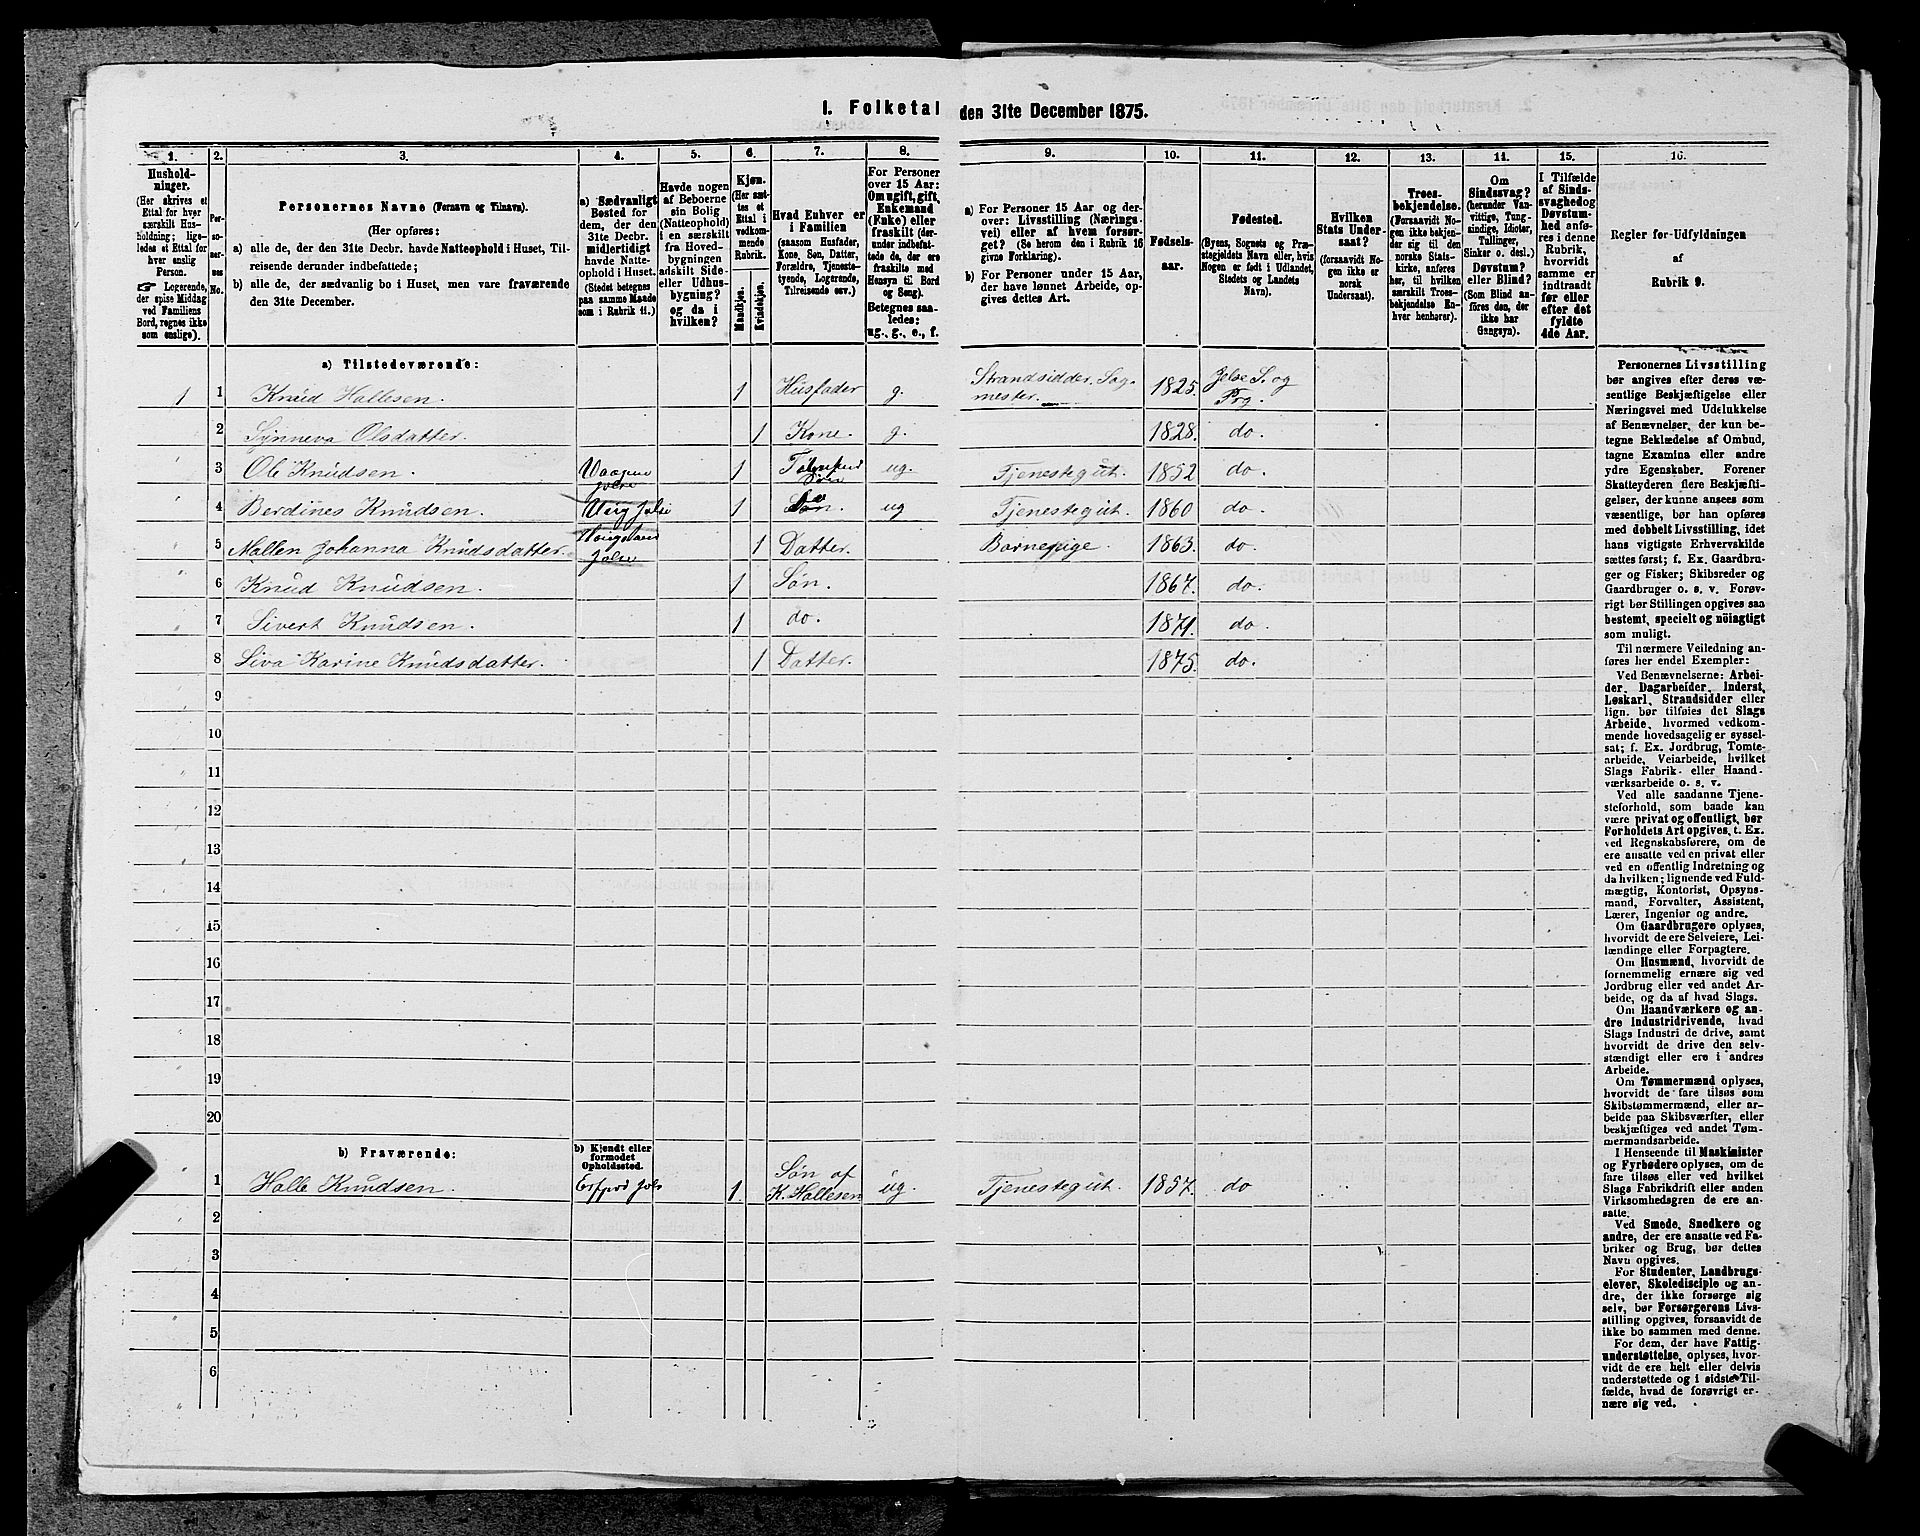 1. Folketal den 31te December 1875.
1. 2. 3. 4. 5. 6. 7. 8. 9. 10. 11. 12. 13. 14. 15. 16.
Hushold-
ninger.
(Her skrives et
Ettal for hver
særskilt Hus-
holdning; lige-
ledes et Ettal for
hver enslig
Person.
☛ Logerende,
der spise Middag
ved Familiens
Bord, regnes ikke
som enslige).
Per-
so-
ner-
nes
No.
Personernes Navne (Fornavn og Tilnavn).
(Her opføres:
a) alle de, der den 31te Decbr. havde Natteophold i Huset, Til-
reisende derunder indbefattede;
b) alle de, der sædvanlig bo i Huset, men vare fraværende
den 31te December.
a) Sædvanligt
Bosted for
dem, der den
31te Decbr.
midlertidigt
havde Natte-
ophold i Huset.
(Stedet betegnes
paa samme Maade
som i Rubrik 11.)
Havde nogen
af Beboerne
sin Bolig
(Natteophold)
i en særskilt
fra Hoved-
bygningen
adskilt Side-
eller Udhus-
bygning?
og da i
hvilken?
Kjøn.
(Her sæt-
tes et
Ettal i
vedkom-
mende
Rubrik.
Mandkjøn.
Kvindekjøn.
Hvad Enhver er
i Familien
(saasom Husfader,
Kone, Søn, Datter,
Forældre, Tjeneste-
tyende, Logerende,
Tilreisende osv.)
For Personer
over 15 Aar:
Om ugift, gift,
Enkemand
(Enke) eller
fraskilt (der-
under indbefat-
tede de, der ere
fraskilte med
Hensyn til Bord
og Seng).
Betegnes saa-
ledes:
ug., g., e., f.
a) For Personer 15 Aar og der-
over: Livsstilling (Nærings-
vei) eller af hvem forsør-
get? (Se herom den i Rubrik 16
givne Forklaring).
b) For Personer under 15 Aar,
der have lønnet Arbeide, op-
gives dettes Art.
Fødsels-
aar.
Fødested.
(Byens, Sognets og Præ-
stegjeldets Navn eller, hvis
Nogen er født i Udlandet,
Stedets og Landets
Navn).
Hvilken
Stats Under-
saat?
(foraavidt No-
gen ikke er
norsk
Undersaat).
Troes-
bekjendelse.
(Forsaavidt No-
gen ikke bekjen-
der sig til den
norske Stats-
kirke, anføres
her, til hvilken
særskilt Troes-
bekjendelse En-
hver henhører).
Om
Sindssvag?
(herunder Van-
vittige, Tung-
sindige, Idioter,
Tullinger,
Sinker o. desl.)
Døvstum?
eller Blind?
(Som Blind an-
føres den, der
ikke har
Gangsyn).
I Tilfælde
af Sinds-
svaghed og
Døvstum-
hed anfø-
res i denne
Rubrik,
hvorvidt
samme er
indtraadt
før eller
efter det
fyldte
4de Aar.
Regler for Udfyldningen
af
Rubrik 9.
a) Tilstedeværende:
1 1 Knud Hallesen. 1 Husfader g. Strandsidder. Sag-
mester. 1825. Jelse S. og
Prg.
2 Synneva Olsdatter. 1 Kone. g. 1828. do.
3 Ole Knudsen. Jelse 1 Søn ug. Tjenestegut. 1852 do.
4 Berdines Knudsen. Jelse 1 ug Tjenestegut. 1860 do.
5 Mallen Johanna Knudsdatter. Jelse 1 Datter. Barnepige. 1863. do.
6 Knud Knudsen. 1 Søn. 1867. do
7 Sivert Knudsen. 1 do. 1871. do.
8 Siva Karine Knudsdatter. 1 Datter. 1875. do.
9
10
11
12
13
14
15
16
17
18
19
20
b) Fraværende:
b) Kjendt eller
formodet
Opholdssted.
1 Halle Knudsen. 1. Søn af
K. Hallesen ug. Tjenestegut. 1857. do
2
3
4
5
6
Personernes Livsstilling
bør angives efter deres væ-
sentlige Beskjæftigelse eller
Næringsvei med Udelukkelse
af Benævnelser, der kun be-
tegne Beklædelse af Ombud,
tagne Examina eller andre
ydre Egenskaber. Forener
Skatteyderen flere Beskjæfti-
gelser, der kunne ansees som
væsentlige, bør han opføres
med dobbelt Livsstilling, idet
hans vigtigste Erhvervskilde
sættes først; f. Ex. Gaardbru-
ger og Fisker; Skibsreder og
Gaardbruger o. s. v. Forøv-
rigt bør Stillingen opgives saa
bestemt, specielt og nöiagtigt
som muligt.
Til nærmere Veiledning an-
føres her endel Exempler:
Ved Benævnelserne: Arbei-
der, Dagarbeider, Inderst,
Løskarl, Strandsidder eller
lign. bør tilføies det Slags
Arbeide, hvormed vedkom-
mende hovedsagelig er syssel-
sat; f. Ex. Jordbrug, Tomte-
arbeide, Veiarbeide, hvilket
Slags Fabrik- eller Haand-
værksarbeide o. s. v.
Ved alle saadanne Tjene-
steforhold, som baade kan
være privat og offentligt, bør
Forholdets Art opgives, t. Ex.
ved Regnskabsførere, om de
ere ansatte ved en privat eller
ved en offentlig Indretning og
da hvilken; lignende ved Fuld-
mægtig, Kontorist, Opsyns-
mand, Forvalter, Assistent,
Lærer, Ingeniør og andre.
Om Gaardbrugere oplyses,
hvorvidt de ere Selveiere, Lei-
lændinge eller Forpagtere.
Om Husmænd, hvorvidt de
fornemmelig ernære sig ved
Jordbrug eller ved andet Ar-
beide, og da af hvad Slags.
Om Haandværkere og an-
dre Industridrivende, hvad
Slags Industri de drive, samt
hvorvidt de drive den selv-
stændigt eller ere i andres
Arbeide.
Om Tømmermænd oplyses,
hvorvidt de fare tilsøs som
Skibstømmermænd, eller ar-
beide paa Skibsværfter, eller
beskjæftiges ved andet Tøm-
mermandsarbeide.
I Henseende til Maskinister
og Fyrbødere oplyses, om de
fare tilsøs eller ved hvilket
Slags Fabrikdrift eller anden
Virksomhedsgren de ere an-
satte.
Ved Smede, Snedkere og
andre, der ere ansatte ved Fa-
briker og Brug, bør dettes
Navn opgives.
For Studenter, Landbrugs-
elever, Skoledisciple og an-
dre, der ikke forsørge sig
selv, bør Forsørgerens Livs-
stilling opgives, forsaavidt de
ikke bo sammen med denne.
For dem, der have Fattig-
understøttelse, oplyses, hvor-
vidt de ere helt eller delvis
understøttede og i sidste Til-
fælde, hvad de forøvrigt er-
nære sig ved.